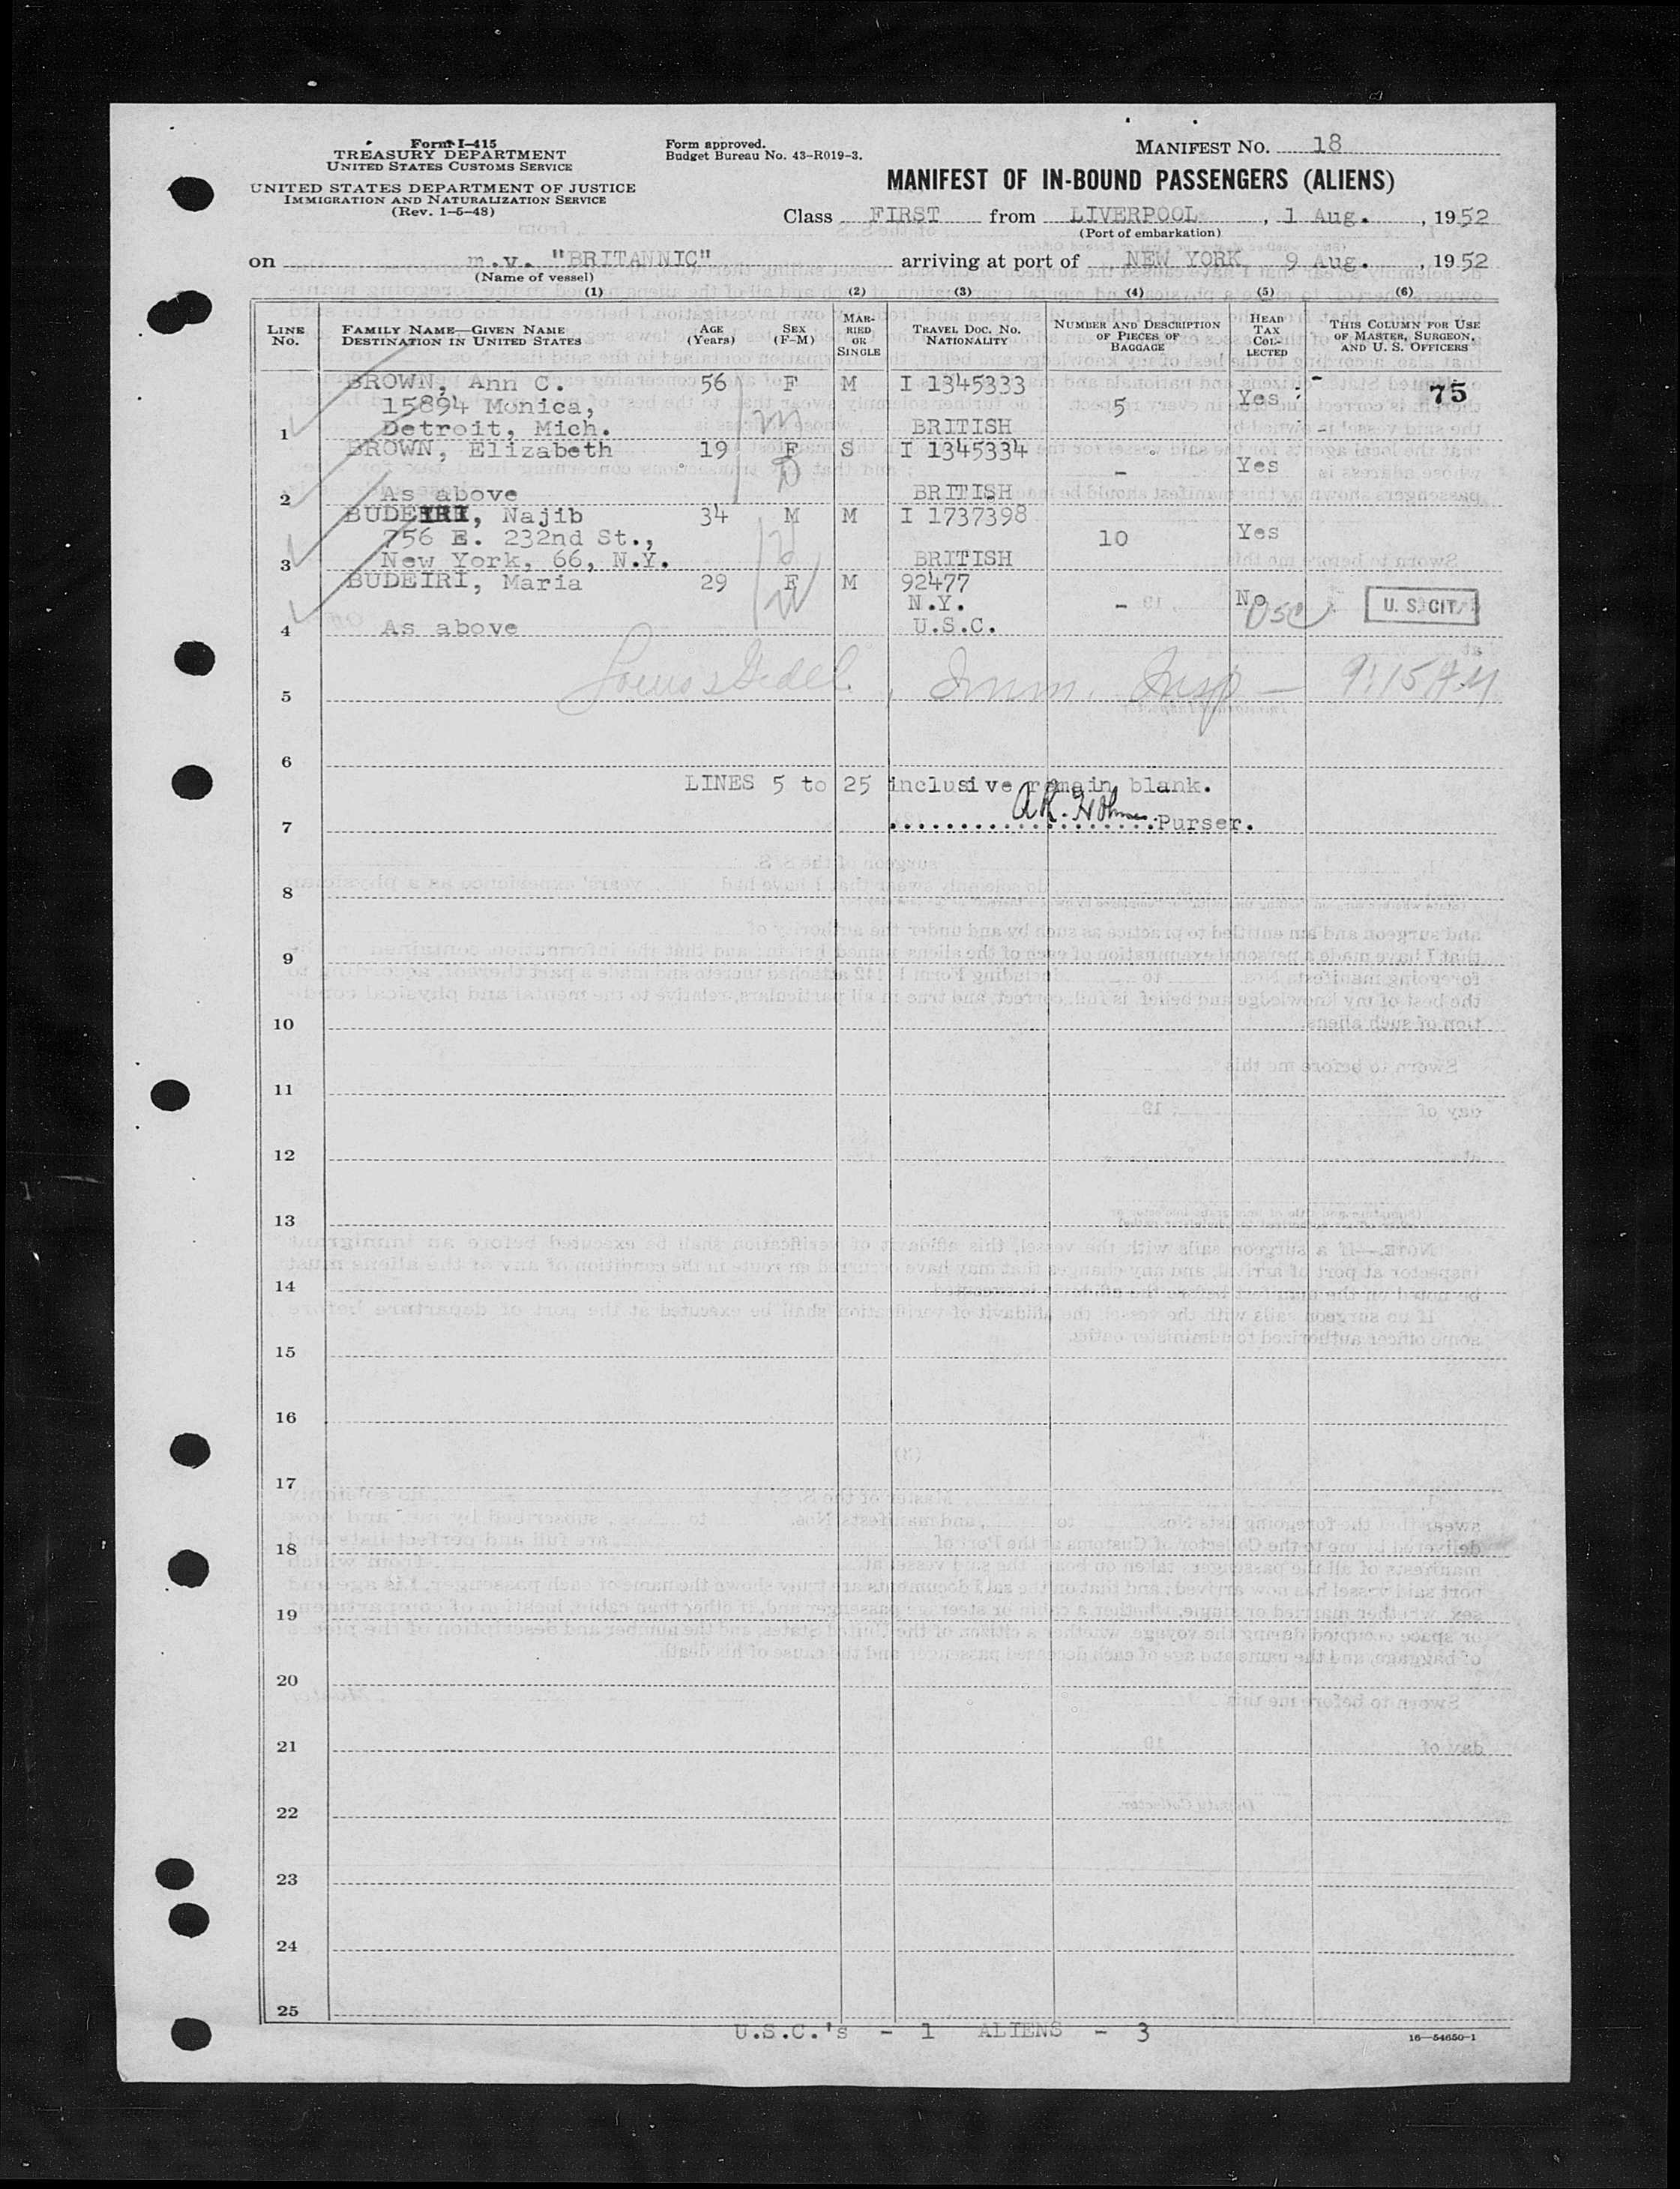 Form I-415
TREASURY DEPARTMENT
UNITED STATES CUSTOMS SERVICE
UNITED STATES DEPARTMENT OF JUSTICE
IMMIGRATION AND NATURALIZATION SERVICE
(Rev. 1-5-48)
Form approved.
Budget Bureau No. 43-R019-3.
MANIFEST NO. 18
MANIFEST OF IN-BOUND PASSENGERS (ALIENS)
Class FIRST from LIVERPOOL, 1 Aug., 1952
(Port of embarkation)
on m.v. "BRITANNIC" arriving at port of NEW YORK 9 Aug., 1952
(Name of vessel)
(1) (2) (3) (4) (5) (6)
LINE No. FAMILY NAME—GIVEN NAME DESTINATION IN UNITED STATES AGE (Years) SEX (F-M) MARRIED OR SINGLE TRAVEL DOC. NO. NATIONALITY NUMBER AND DESCRIPTION OF PIECES OF BAGGAGE HEAD TAX COLLECTED THIS COLUMN FOR USE OF MASTER, SURGEON, AND U. S. OFFICERS
BROWN, Ann C. 56 F M I 1345333 Yes 75
15894 Monica, 5
1 Detroit, Mich. BRITISH
BROWN, Elizabeth 19 F S I 1345334 - Yes
2 As above BRITISH
BUDEIRI, Najib 34 M M I 1737398 Yes
756 E. 232nd St., 10
3 New York, 66, N.Y. BRITISH
BUDEIRI, Maria 29 F M 92477
N.Y. - No USC U. S. CIT.
4 As above U.S.C.
5 Imm. Insp — 9:15 AM
6
LINES 5 to 25 inclusive remain blank.
7 Purser.
8
9
10
11
12
13
14
15
16
17
18
19
20
21
22
23
24
25
U.S.C.'s - 1 ALIENS - 3
16—54650-1